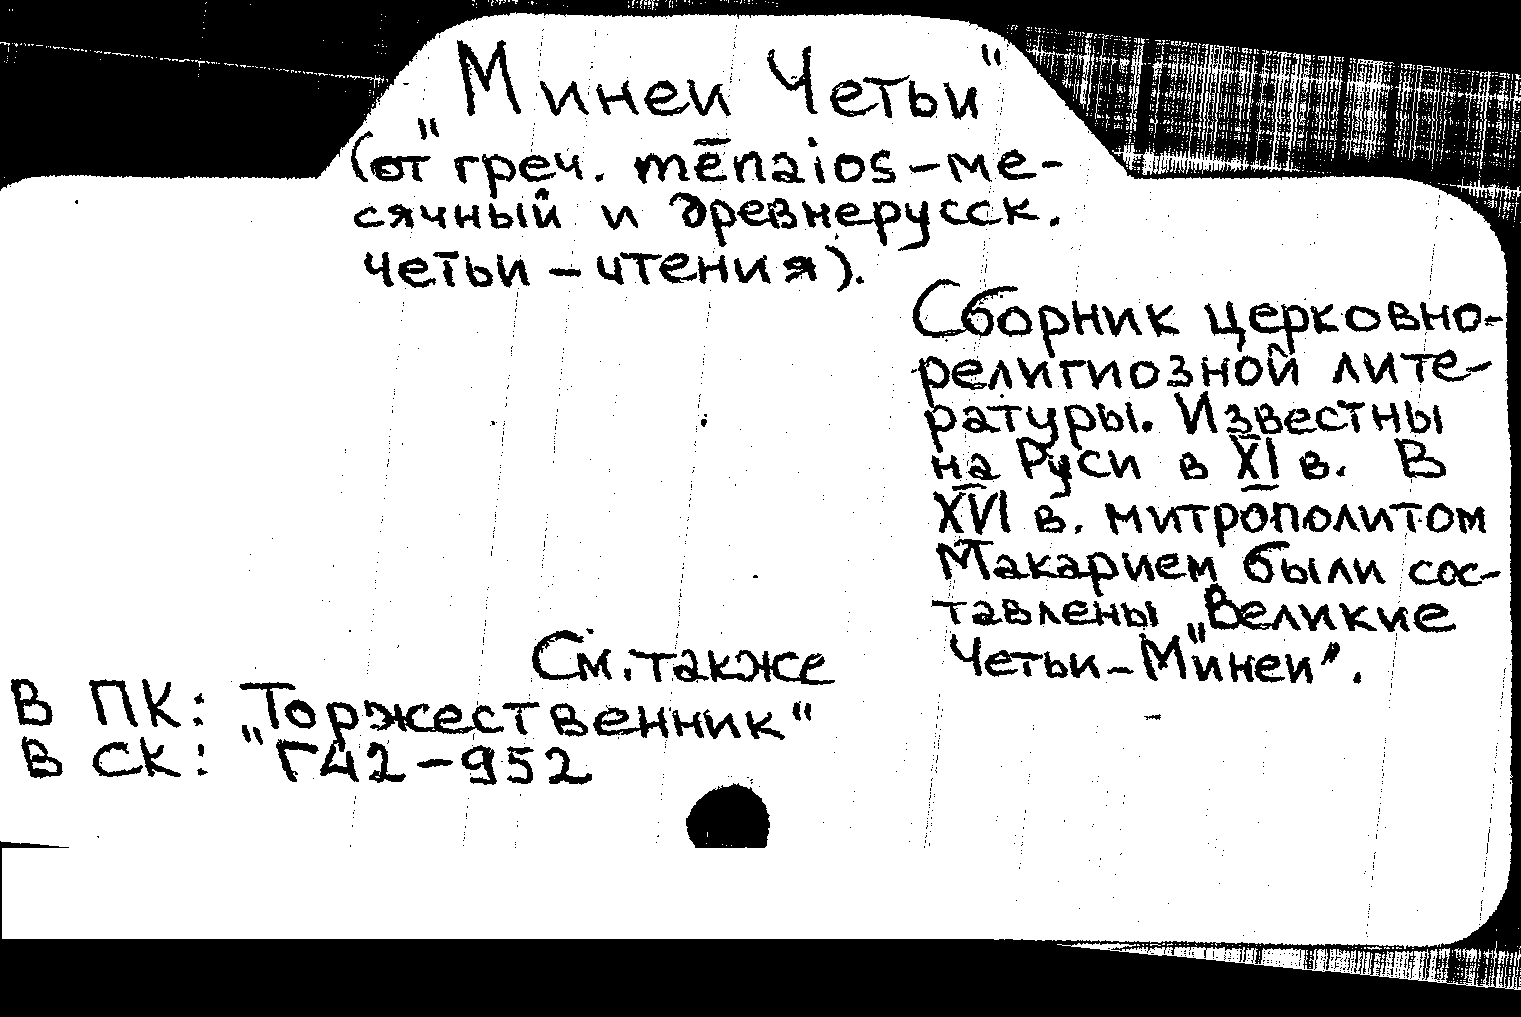 „Минеи Четьи"
(от греч. mēnaios – ме-
сячный и древнерусск.
четьи – чтения).
Сборник церковно-
религиозной лите-
ратуры. Известны
на Руси в XI в. В
XVI в. митрополитом
Макарием были сос-
тавлены „Великие
Четьи-Минеи".
См. также
В ПК: „Торжественник"
В СК: Г42-952